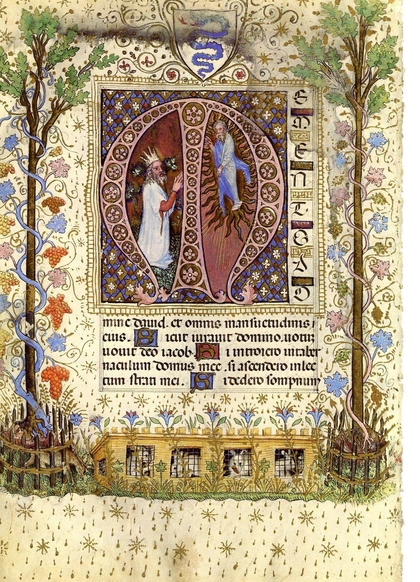 M
E
M
E
N
T
O
D
O
mine dauid. et omnis mansuetudinis
eius. Sicut iurauit domino. uotum
uouit deo iacob. Si introiero in taber
naculum domus mee. si ascendero in lec
tum strati mei. Si dedero sompnum